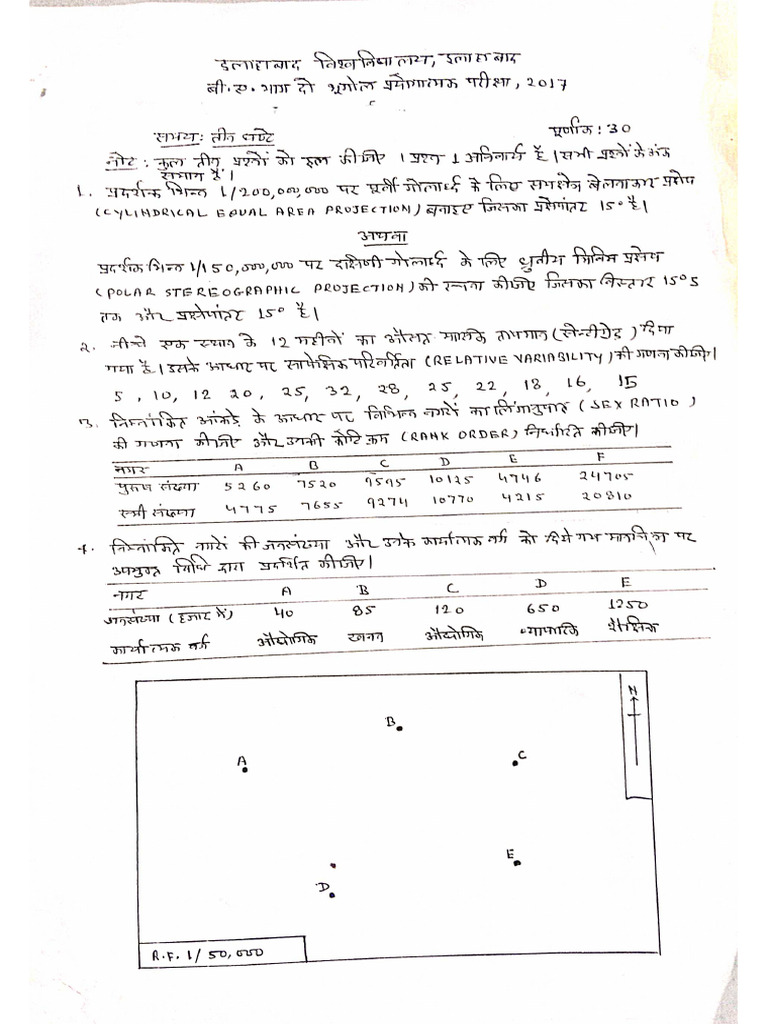 इलाहाबाद विश्वविद्यालय, इलाहाबाद
बी.ए. भाग दो भूगोल प्रयोगात्मक परीक्षा, 2017
समय: तीन घण्टे पूर्णांक: 30
नोट: कुल तीन प्रश्नों को हल कीजिए। प्रश्न 1 अनिवार्य है। सभी प्रश्नों के अंक
समान हैं।
1. प्रदर्शक भिन्न 1/200,000,000 पर पूर्वी गोलार्द्ध के लिए समक्षेत्र बेलनाकार प्रक्षेप
(CYLINDRICAL EQUAL AREA PROJECTION) बनाइए जिसका प्रक्षेपांतर 15° है।
अथवा
प्रदर्शक भिन्न 1/150,000,000 पर दक्षिणी गोलार्द्ध के लिए ध्रुवीय त्रिविम प्रक्षेप
(POLAR STEREOGRAPHIC PROJECTION) की रचना कीजिए जिसका विस्तार 15°S
तक और प्रक्षेपांतर 15° है।
2. नीचे एक स्थान के 12 महीनों का औसत मासिक तापमान (सेन्टीग्रेड) दिया
गया है। इसके आधार पर सापेक्षिक परिवर्तिता (RELATIVE VARIABILITY) की गणना कीजिए।
5, 10, 12 20, 25, 32, 28, 25, 22, 18, 16, 15
3. निम्नांकित आंकड़े के आधार पर विभिन्न नगरों का लिंगानुपात (SEX RATIO)
की गणना कीजिए और उनकी कोटि क्रम (RANK ORDER) निर्धारित कीजिए।
नगर A B C D E F
पुरुष संख्या 5260 7520 9595 10125 4746 24705
स्त्री संख्या 4775 7655 9274 10770 4215 20810
4. निम्नांकित नगरों की जनसंख्या और उनके कार्यात्मक वर्ग को दिये गए मानचित्र पर
उपयुक्त विधि द्वारा प्रदर्शित कीजिए।
नगर A B C D E
जनसंख्या (हजार में) 40 85 120 650 1250
कार्यात्मक वर्ग औद्योगिक खनन औद्योगिक व्यापारिक शैक्षिक
N
B
A
C
E
D
R.F. 1/50,000